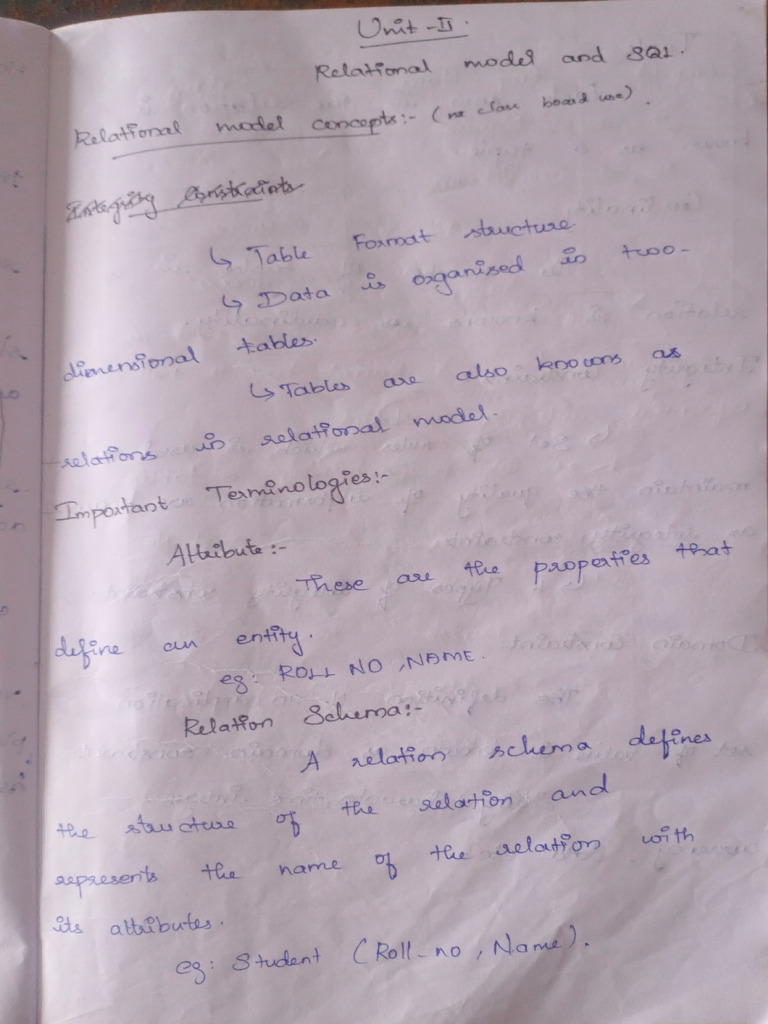 Unit - II.
Relational model and SQL.
Relational model concepts:- (no class board use).
Integrity Constraints
↳ Table Format structure
↳ Data is organised in two-
dimensional tables.
↳ Tables are also knowns as
relations in relational model.
Important Terminologies:-
Attribute:-
These are the properties that
define an entity.
eg: ROLL NO, NAME.
Relation Schema:-
A relation schema defines
the structure of the relation and
represents the name of the relation with
its attributes.
eg: Student (Roll-no, Name).